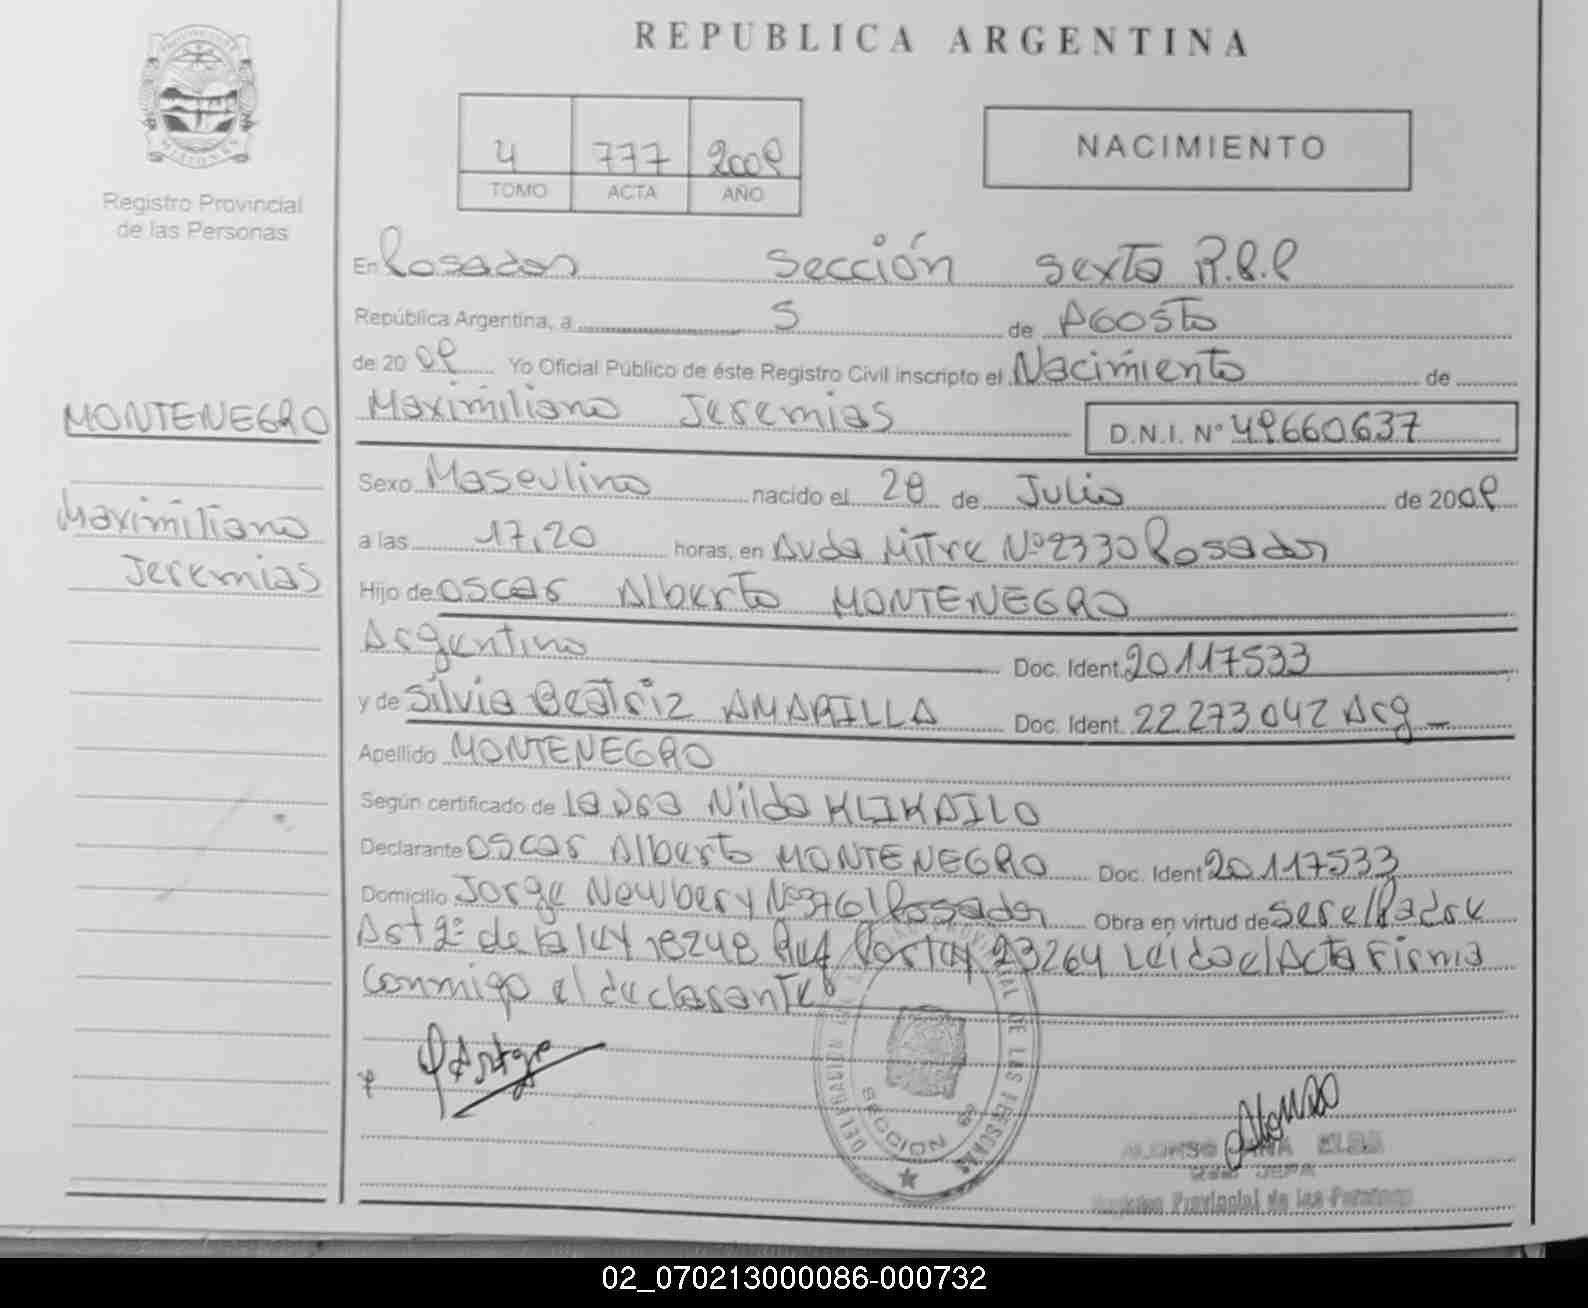 REPUBLICA ARGENTINA
4 777 2009
TOMO ACTA AÑO
NACIMIENTO
Registro Provincial
de las Personas
En Posadas Sección Sexta R.P.P
República Argentina, a 5 de Agosto
de 20 09 Yo Oficial Público de éste Registro Civil inscripto el Nacimiento de
MONTENEGRO
Maximiliano Jeremias D.N.I. N° 49660637
Sexo Masculino nacido el 28 de Julio de 2009
Maximiliano
a las 17,20 horas, en Avda Mitre Nº 2330 Posadas
Jeremias
Hijo de Oscar Alberto MONTENEGRO
Argentino Doc. Ident. 20117533
y de Silvia Beatriz AMARILLA Doc. Ident. 22.273.042 Arg
Apellido MONTENEGRO
Según certificado de la Dra Nilda KLIKAILO
Declarante Oscar Alberto MONTENEGRO Doc. Ident 20.117533
Domicilio Jorge Newbery Nº 3761 Posadas Obra en virtud de ser el Padre
Art 2º de la Ley 18248 23264 Leida el Acta Firma
conmigo el declarante
DE LAS PERSONAS
SECCION 6ª
ALONSO ANA ELBA
Registro Provincial de las Personas
02_070213000086-000732